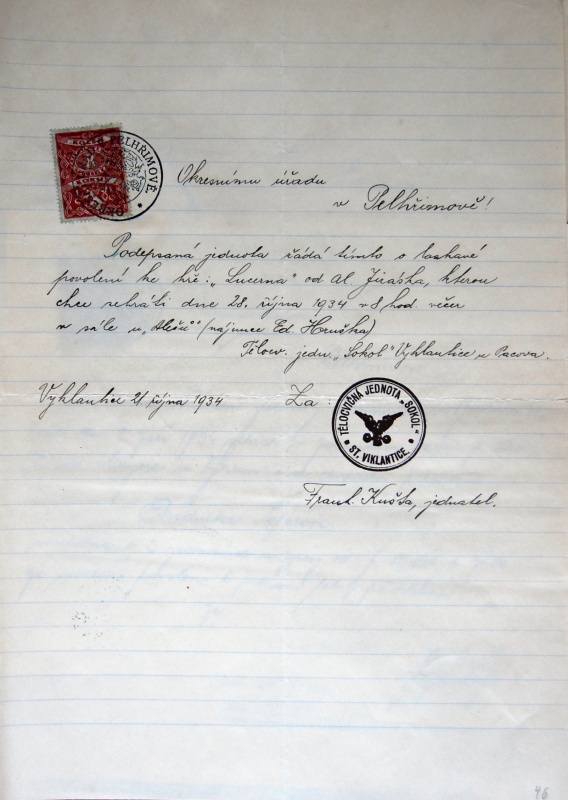 PELHŘIMOVĚ
Okresnímu úřadu
v Pelhřimově!
Podepsaná jednota žádá tímto o laskavé
povolení ke hře: „Lucerna" od Al. Jiráska, kterou
chce sehráti dne 28. října 1934 v 8 hod. večer
v sále u „Alešů" (nájemce Ed. Hruška)
Těloc. jedn. „Sokol" Vyklantice u Pacova.
Vyklantice 21/ října 1934 Za:
TĚLOCVIČNÁ JEDNOTA „SOKOL"
ST. VIKLANTICE.
Frant. Kušta, jednatel.
46